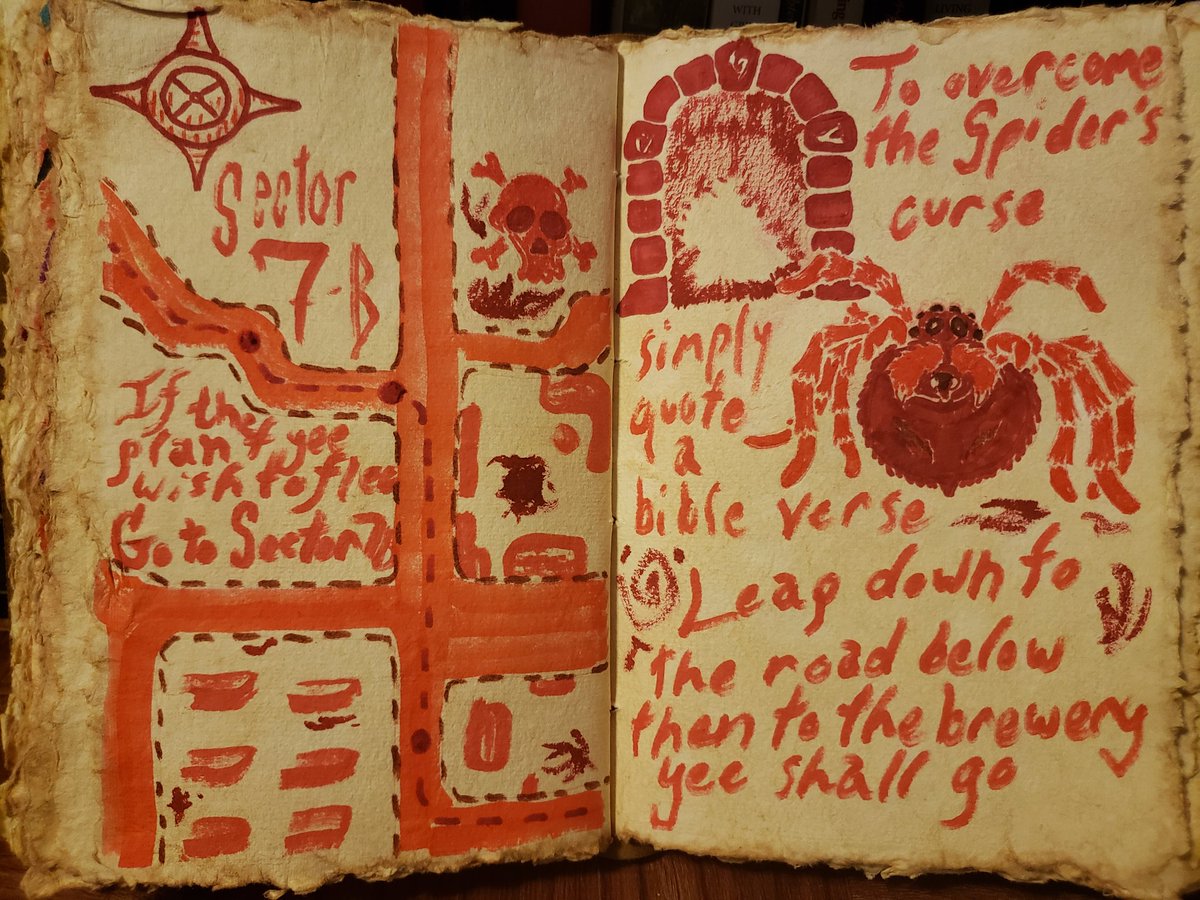 WITH
LIVING
Sector
7-B
If the plan
yee
wish to flee
Go to Sector 7b
To overcome
the Spider's
curse
simply
quote
a
bible verse
Leap down to
the road below
then to the brewery
yee shall go